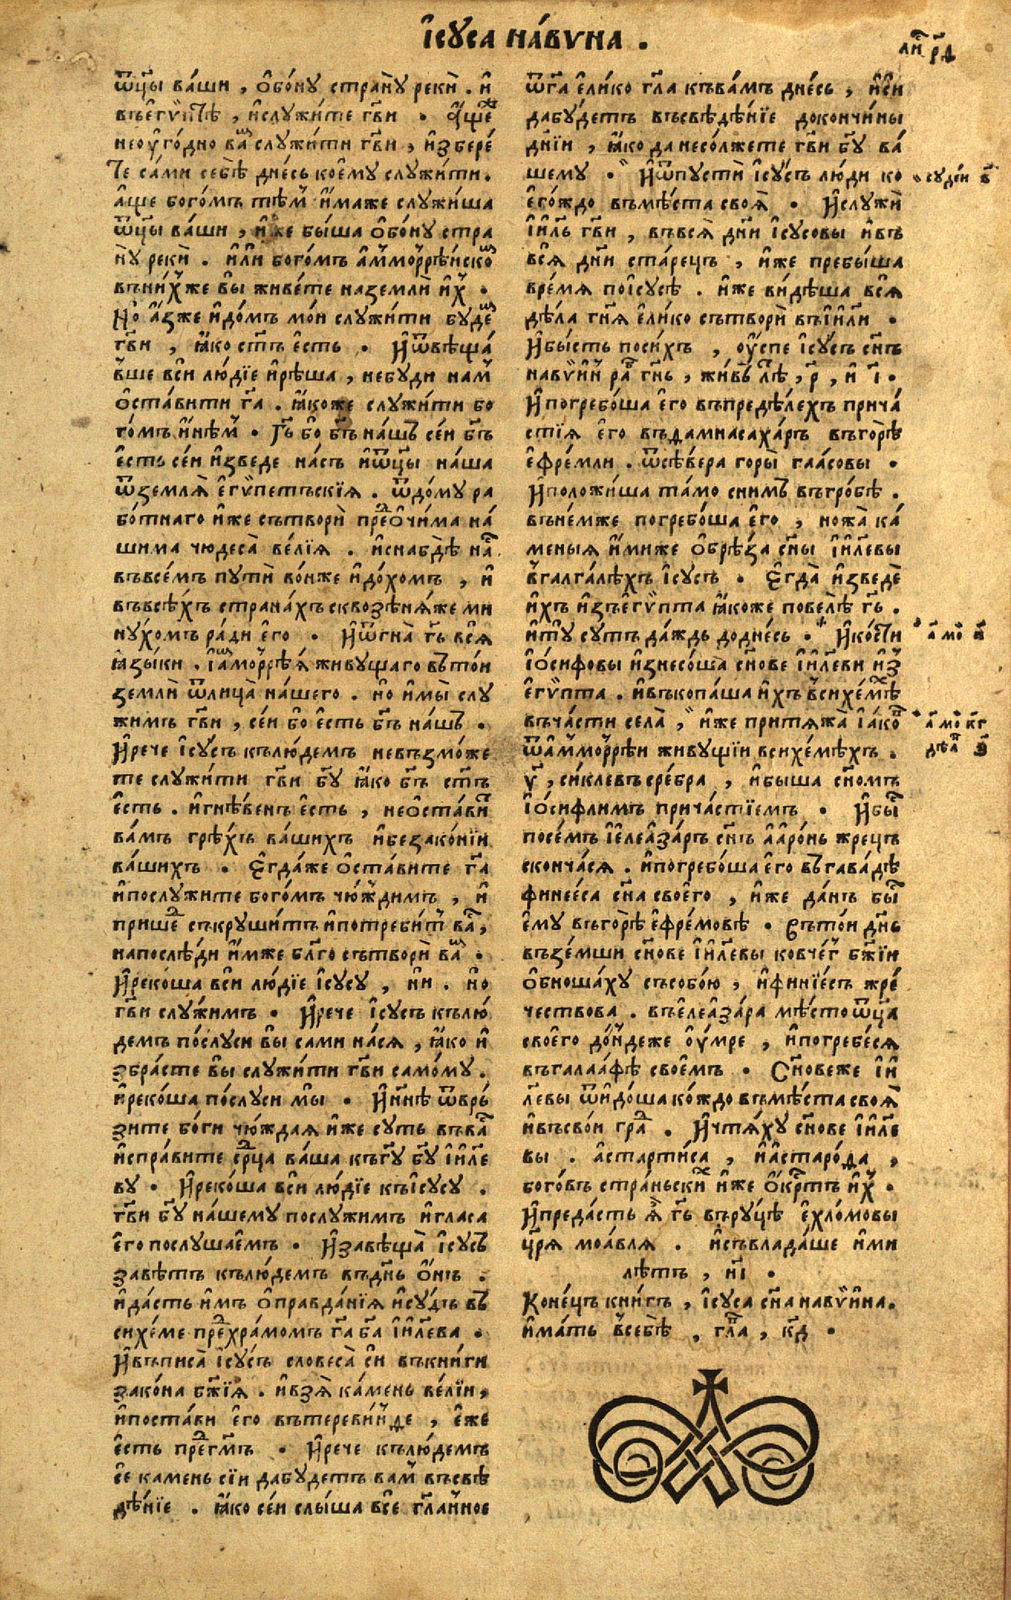 І҆сꙋса На́вѵна .
ли́ст рд҃
ѿц҃ы ва́ши , ѻ҆бо́нꙋ странꙋ̀ рекѝ . и҆
въе҆гѵ́птѣ , и҆слꙋжи́те гв҃и . а҆́ще
неѹ҆го́дно ва́м слꙋжи́ти гв҃и , и҆збере́
те са́ми себѣ̀ дне́сь кое́мꙋ слꙋжи́ти .
а҆́ще бого́мъ тѣ́м и҆́маже слꙋжи́ша
ѿц҃ы ва́ши , и҆́же бы́ша ѻ҆бо́нꙋ стра
нꙋ̀ рекѝ . и҆лѝ бого́мъ а҆м̾мо́ррѣ́иском
вни́хже вы̀ живе́те наземлѝ и҆́х .
Но̀ а҆́зже и҆до́мъ мо́и слꙋжи́ти бꙋ́дем
гв҃и , ꙗ҆́ко ст҃ъ є҆́сть . И҆ѿвѣща́
вше всѝ лю́дїе и҆рѣ́ша , небꙋ́ди на́м
ѻ҆ста́вити гд҃а . ꙗ҆́коже слꙋжи́ти бо
го́мъ и҆нѣ́м . Гд҃ь бо бг҃ъ на́шъ се́и бг҃ъ
є҆́сть се́и и҆зведе на́съ и҆ѿц҃ы на́ша
ѿземлѧ̀ є҆гѵ́петъскїѧ . ѿдо́мꙋ ра
бо́тнаго и҆́же сътворѝ пред̾ѻ҆чи́ма на́
шима чюдеса̀ ве́лїѧ . и҆снабдѣ̀ на́с
въвсе́мъ пꙋтѝ во́нже и҆до́хомъ , и҆
въвсѣ́хъ страна́хъ сквозѣ́нѧ́же ми
нꙋ́хомъ ра́ди є҆го̀ . И҆ѿгна̀ гд҃ь всѧ̀
ꙗ҆зы́ки . и҆а҆мо́ррѣ́ѧ живꙋ́щаго въто́и
землѝ ѿлица̀ на́шего . но̀ и҆мы̀ слꙋ
жи́мъ гв҃и , се́и бо є҆́сть бг҃ъ на́шъ .
И҆речѐ і҆сꙋ́съ клю́демъ невъзмо́же
те слꙋжи́ти гв҃и бг҃ꙋ ꙗ҆́ко бг҃ъ ст҃ъ
є҆́сть . и҆гнѣ́венъ є҆́сть , неѻ҆ста́вит
ва́мъ грѣ́хъ ва́шихъ и҆безако́нїи
ва́шихъ . Е҆гда́же ѻ҆ста́вите гд҃а
и҆послꙋ́жите бого́мъ чю́ждимъ , и҆
прише́д съкрꙋши́тъ и҆потреби́т ва́с ,
напослѣ́ди и҆́мже бл҃го сътворѝ ва́м .
И҆реко́ша всѝ лю́дїе і҆сꙋ́сꙋ , нѝ . но̀
гв҃и слꙋ́жимъ . И҆речѐ і҆сꙋ́съ клю́
демъ по́слꙋси вы̀ са́ми на́сѧ , ꙗ҆́ко и҆
збра́сте вы̀ слꙋжи́ти гв҃и само́мꙋ .
и҆реко́ша по́слꙋси мы̀ . И҆нн҃ѣ ѿвръ́
зите бо́ги чю́ждаѧ и҆́же сꙋ́ть въва́с
и҆спра́вите срд҃ца ва́ша къгдꙋ҃ бг҃ꙋ і҆и҃ле
вꙋ . И҆реко́ша всѝ лю́дїе къі҆сꙋ́сꙋ .
гв҃и бг҃ꙋ на́шемꙋ послꙋ́жимъ и҆гла́са
є҆го̀ послꙋ́шаемъ . И҆завѣща̀ і҆сꙋ́съ
завѣ́тъ клю́демъ въдн҃ь ѻ҆́нъ .
и҆да́сть и҆́мъ ѻ҆правда́нїѧ и҆сꙋ́дъ въ
сихе́ме пред̾хра́момъ гд҃а бг҃а і҆и҃лева .
И҆въписа̀ і҆сꙋ́съ словеса̀ сѝ въкни́ги
зако́на бж҃їѧ . и҆взѧ̀ ка́мень ве́лїи ,
и҆поста́ви є҆го̀ вътереви́нде , є҆́же
є҆́сть пред̾гм҃ъ . И҆речѐ клю́демъ
сѐ ка́мень сїѝ дабꙋ́детъ ва́м въсвѣ
дѣ́нїе . ꙗ҆́ко се́и слы́ша всѐ гл҃анное
ѿгд҃а є҆ли́ко гл҃а къва́мъ дне́сь , и҆сѝ
дабꙋ́детъ въсвѣдѣ́нїе доконьчи́ны
дн҃їи , ꙗ҆́ко да несо́лжете гв҃и бг҃ꙋ ва́
шемꙋ . И҆ѿпꙋстѝ і҆сꙋ́съ лю́ди ко
є҆го́ждо въмѣ́ста своѧ̀ . И҆слꙋжѝ
і҆и҃ль гв҃и , въвсѧ̀ дн҃и і҆сꙋ́совы и҆въ
всѧ̀ дн҃и ста́рецъ , и҆́же пребы́ша
вре́мѧ поі҆сꙋ́сѣ . и҆́же ви́дѣша всѧ̀
дѣ́ла гн҃ѧ є҆ли́ко сътворѝ въі҆и҃ли .
И҆бы́сть поси́хъ , ѹ҆́спе і҆сꙋ́съ сн҃ъ
навѵ́инъ ра́б гн҃ь , жи́въ лѣ́т , р҃ , и҆ і҃ .
И҆погребо́ша є҆го̀ въпредѣ́лехъ прича́
стїѧ є҆го̀ въда́мнаса́харъ въго́рѣ
є҆фре́мли . ѿсѣ́вера горы̀ гаа́совы .
И҆положи́ша та́мо сни́мъ въгро́бѣ .
вне́мже погребо́ша є҆го̀ , ножа̀ ка́
меныѧ и҆́миже ѻ҆брѣ́за сн҃ы і҆и҃левы
вгалгалѣ́хъ і҆сꙋ́съ . Е҆гда̀ и҆зведѐ
и҆́хъ и҆зъе҆гѵ́пта ꙗ҆́коже повелѣ̀ гд҃ь .
и҆тꙋ̀ сꙋ́ть да́ждь додне́сь . И҆ко́сти
і҆ѻ́сифовы и҆знесо́ша сн҃ове і҆и҃леви и҆з̾
є҆гѵ́пта . и҆въкопа́ша и҆́хъ всихе́мѣ
въча́сти села̀ , и҆́же притѧжа̀ і҆а́ков
ѿа҆м̾мо́ррѣи живꙋ́щїи всихе́мѣхъ .
у҃ , си́клевъ сребра̀ , и҆бы́ша сн҃омъ
і҆ѻ́сифлимъ прича́стїемъ . И҆бы́с
посе́мъ і҆елеаза́ръ сн҃ъ а҆аро́нь жре́цъ
сконча́сѧ . и҆погребо́ша є҆го̀ въгава́дѣ
финее́са сн҃а своего̀ , и҆́же да́нъ бы́с
є҆мꙋ̀ въго́рѣ є҆фре́мовѣ . Въто́и дн҃ь
взе́мши сн҃ове і҆и҃левы ковче́г бж҃їи
ѻ҆бноша́хꙋ съсобо́ю , и҆финїе́съ жре́
чествова . въе҆леаза́ра мѣ́сто ѿц҃а
своего̀ до́ндеже ѹ҆́мре , и҆погребе́сѧ
въгалаа́фѣ свое́мъ . Сн҃овеже і҆и҃
левы ѿидо́ша ко́ждо въмѣ́ста своѧ̀
и҆въсво́и гра́д . И҆чтѧ́хꙋ сн҃ове і҆и҃ле
вы . а҆старти́са , и҆а҆старо́да ,
бого́въ стра́ньских и҆́же ѻ҆́крстъ и҆́х .
И҆преда́сть ѧ҆̀ гд҃ь врꙋ́цѣ є҆хло́мовы
цр҃ѧ моа́влѧ . и҆съвлада́ше и҆́ми
лѣ́тъ , и҃і .
Коне́цъ кни́гъ , і҆сꙋ́са сн҃а навѵ́ина .
и҆́мать всебѣ̀ , гл҃а , кд҃ .
сꙋде́и в҃